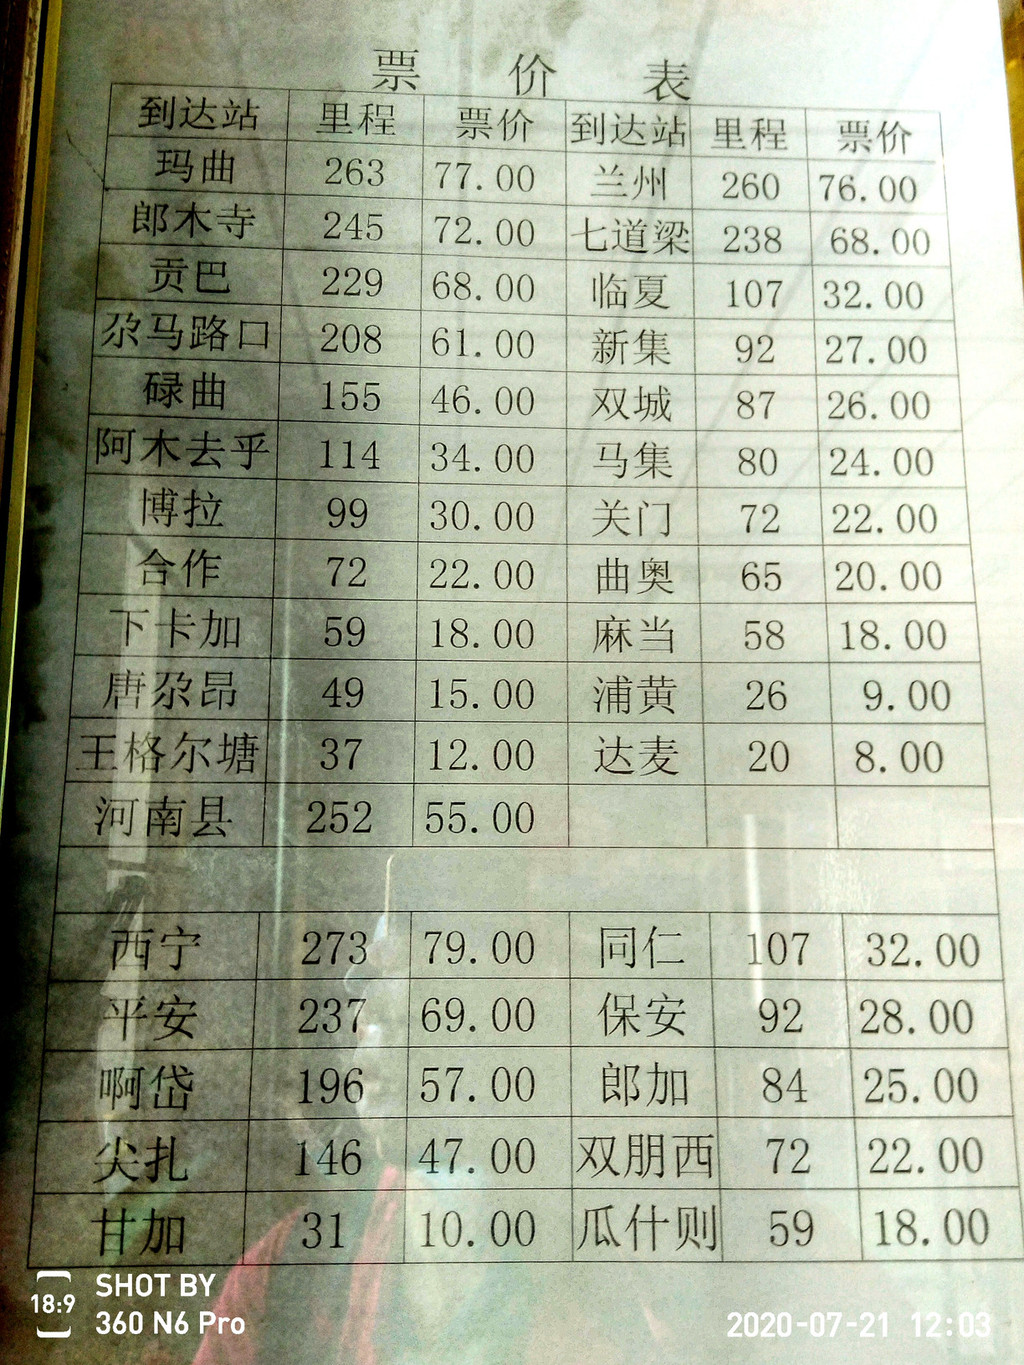 票 价 表
到达站 里程 票价 到达站 里程 票价
玛曲 263 77.00 兰州 260 76.00
郎木寺 245 72.00 七道梁 238 68.00
贡巴 229 68.00 临夏 107 32.00
尕马路口 208 61.00 新集 92 27.00
碌曲 155 46.00 双城 87 26.00
阿木去乎 114 34.00 马集 80 24.00
博拉 99 30.00 关门 72 22.00
合作 72 22.00 曲奥 65 20.00
下卡加 59 18.00 麻当 58 18.00
唐尕昂 49 15.00 浦黄 26 9.00
王格尔塘 37 12.00 达麦 20 8.00
河南县 252 55.00
西宁 273 79.00 同仁 107 32.00
平安 237 69.00 保安 92 28.00
啊岱 196 57.00 郎加 84 25.00
尖扎 146 47.00 双朋西 72 22.00
甘加 31 10.00 瓜什则 59 18.00
18:9
SHOT BY
360 N6 Pro
2020-07-21 12:03